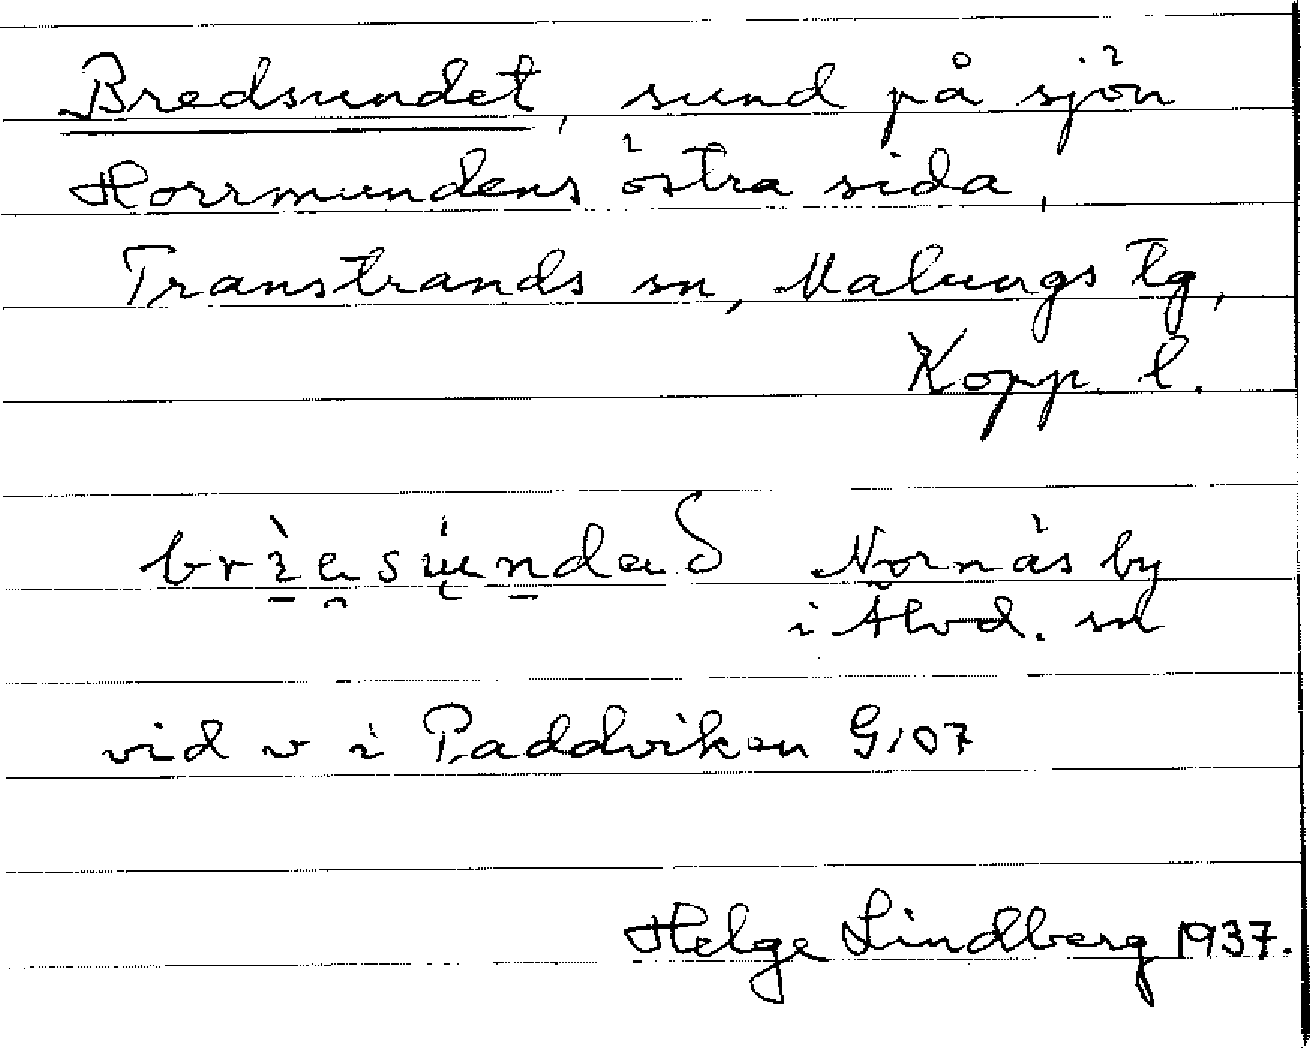 Bredsundet, sund på sjön
Horrmundens östra sida,
Transtrands sn, Malungs tg,
Kopp. l.
Nornäs by
i Älvd. sn
vid v i Paddviken G107
Helge Lindberg 1937.